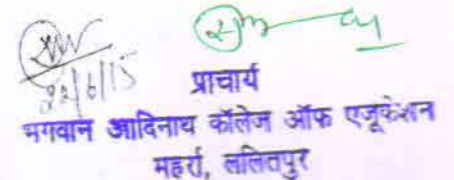 22/6/15
प्राचार्य
भगवान आदिनाथ कॉलेज ऑफ एजूकेशन
महर्रा, ललितपुर